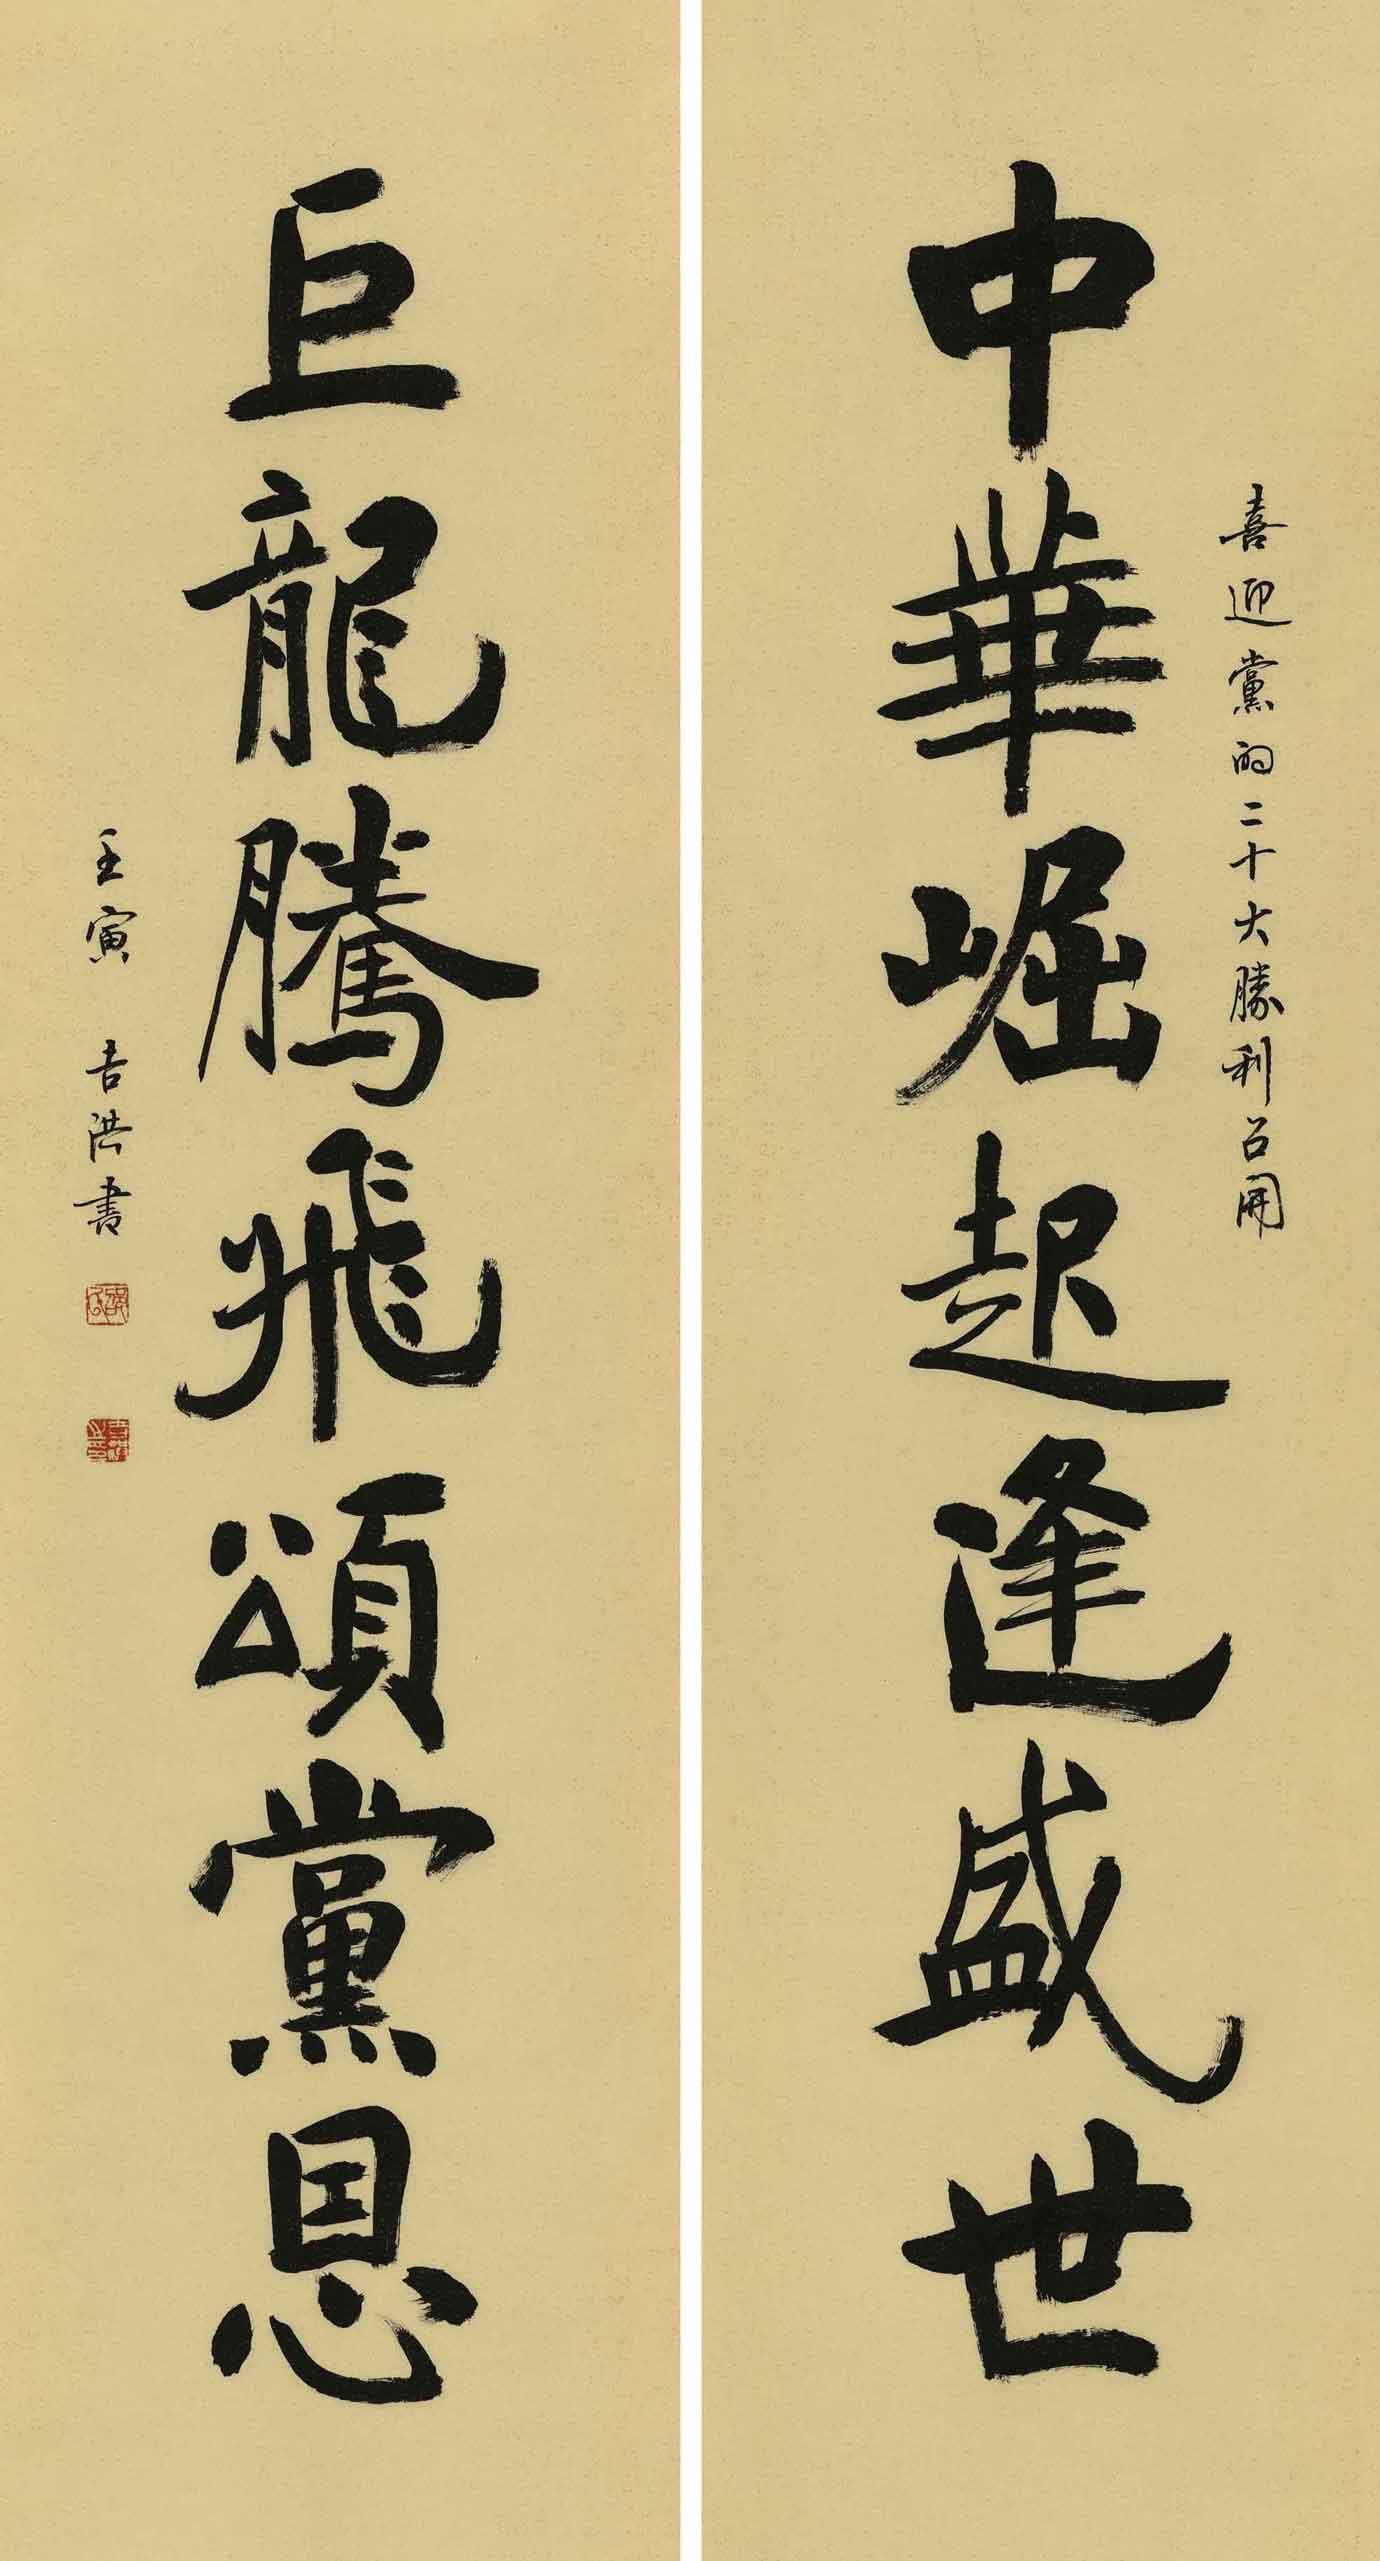 喜迎黨的二十大勝利召開
中華崛起逢盛世
巨龍騰飛頌黨恩
壬寅 吉洪書